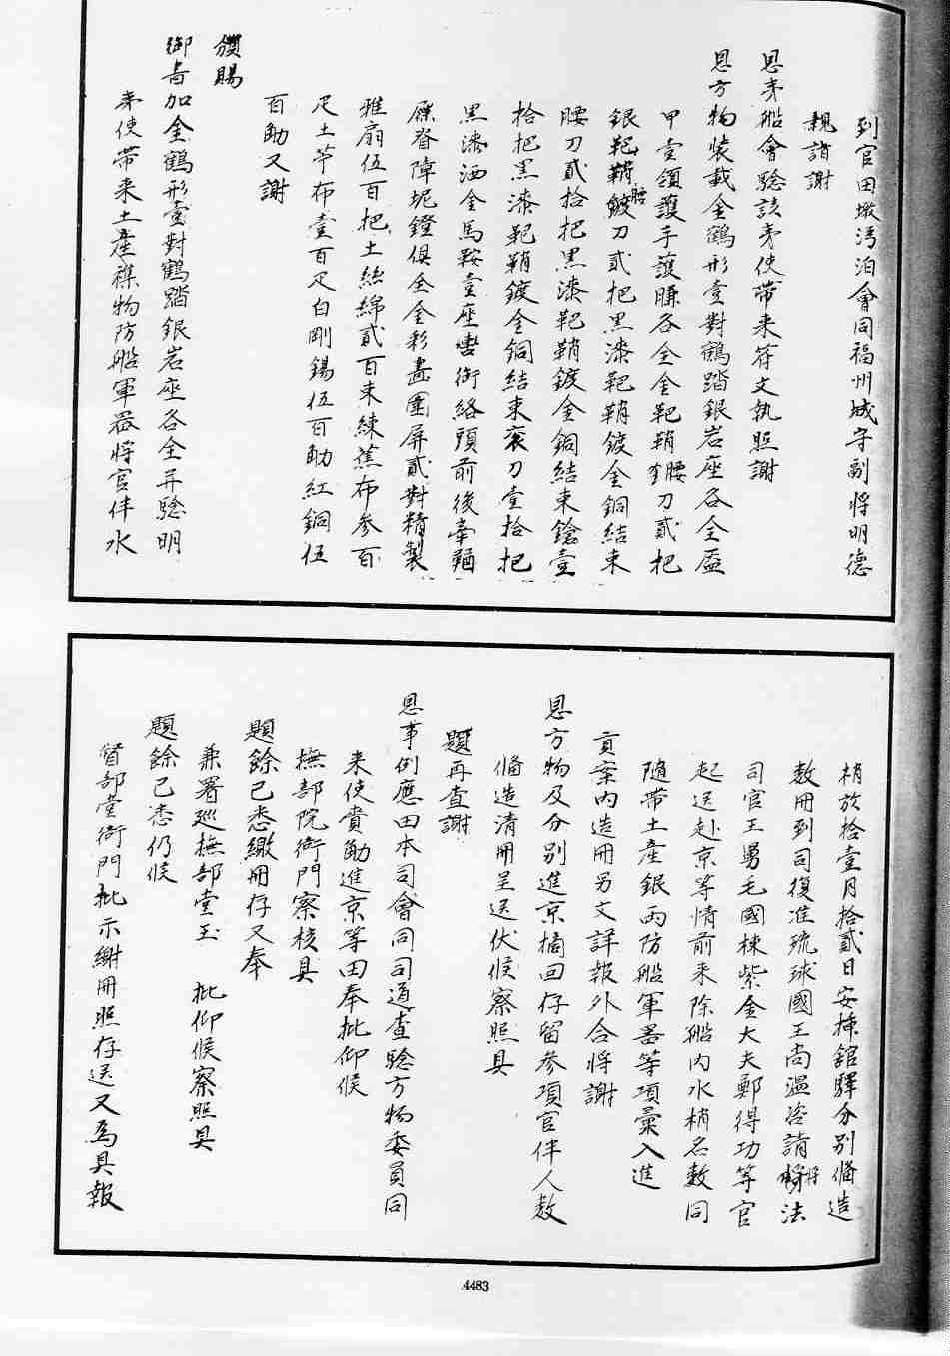 到官田墩湾泊會同福州城守副將明德
親詣謝
恩來船會驗該來使帶来符文執照謝
恩方物装載金鶴形壹對鶴踏銀岩座各全盔
甲壹領護手護臁各全金靶鞘腰刀貳把
銀靶鞘腰刀貳把黒漆靶鞘鍍金銅結束
腰刀貳拾把黒漆靶鞘鍍金銅結束鎗壹
拾把黒漆靶鞘鍍金銅結束衮刀壹拾把
黒漆洒金馬鞍壹座轡銜絡頭前後牽鞧
屜脊障坭鐙俱全金彩畵圍屏貳對精製
雅扇伍百把土絲綿貳百束練蕉布參百
疋土苧布壹百疋白剛錫伍百觔紅銅伍
百觔又謝
頒賜
御書加金鶴形壹對鶴踏銀岩座各全并驗明
來使帶来土產襍物防船軍器將官伴水
梢於拾壹月拾貳日安揷舘驛分别俻造
数冊到司復准琉球國王尚温咨請將法
司官王舅毛國棟紫金大夫鄭得功等官
起送赴京等情前来除船内水梢名数同
隨帶土產銀両防船軍器等項彙入進
貢案内造冊另文詳報外合將謝
恩方物及分别進京摘回存留參項官伴人数
俻造清冊呈送伏候察照具
題再查謝
恩事例應由本司會同司道查驗方物委員同
来使賫觔進京等由奉批仰候
撫部院衙門察核具
題餘已悉繳冊存又奉
兼署巡撫部堂玉 批仰候察照具
題餘已悉仍候
督部堂衙門批示繳冊照存送又爲具報
4483